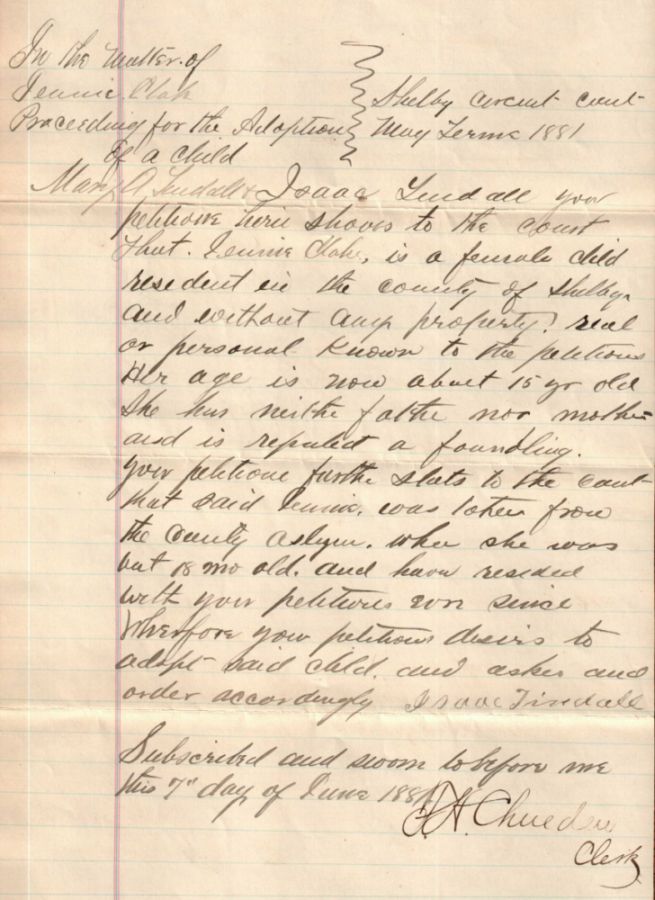 In the matter of
Jennie Clark
Proceeding for the Adoption
of a child
Shelby circuit court
May Terms 1881
Mary A Tindall & Isaac Tindall your
petitions herein shows to the court
that Jennie Clark, is a female child
resident in the county of Shelby.
and without any property, real
or personal known to the petitions
Her age is now about 15 yr old
She has neithe fathe nor mother
and is reputed a foundling.
your petitione furthe stats to the court
that said Jennie, was taken from
the county Asylum. when she was
but 18 mo old. and have resided
with your petitions ever since
Wherefore your petitions desires to
adopt said child. and askes and
order accordingly Isaac Tindall
Subscribed and sworn to before me
this 7" day of June 1881
Clerk